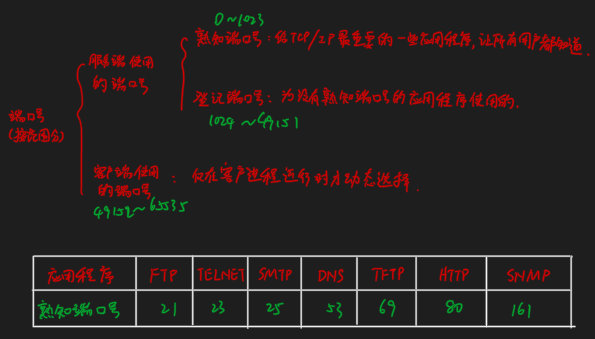 0~1023
熟知端口号：给TCP/IP最重要的一些应用程序,让所有用户都知道.
服务端使用
的端口号
登记端口号：为没有熟知端口号的应用程序使用的.
1024 ~49151
端口号
客户端使用
的端口号 ：仅在客户进程运行时才动态选择.
49152~65535
应用程序 FTP TELNET SMTP DNS TFTP HTTP SNMP
熟知端口号 21 23 25 53 69 80 161